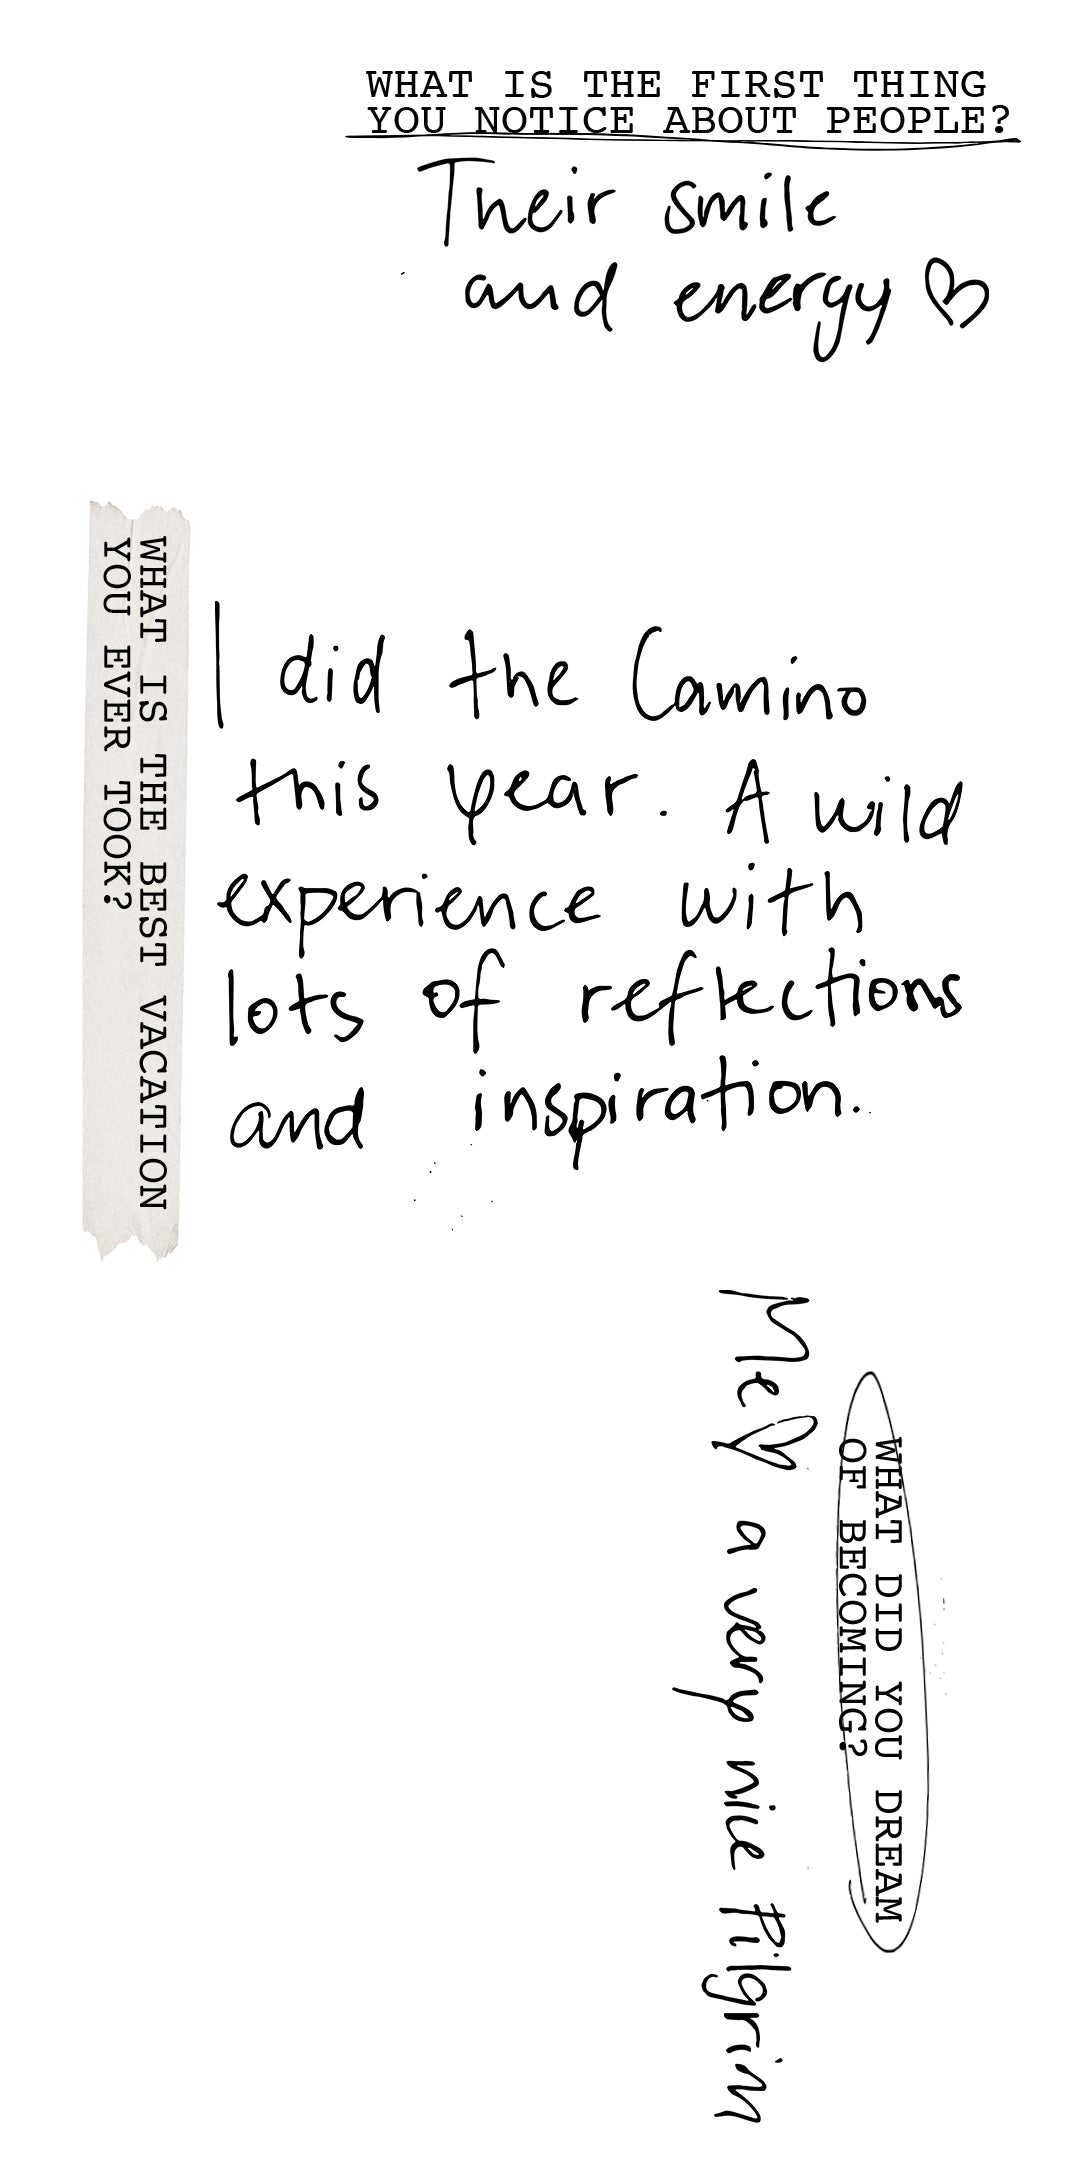 WHAT IS THE FIRST THING
YOU NOTICE ABOUT PEOPLE?
Their smile
and energy
WHAT IS THE BEST VACATION
YOU EVER TOOK?
I did the Camino
this year. A wild
experience with
lots of reflections
and inspiration.
WHAT DID YOU DREAM
OF BECOMING?
Me♡ a very nice Pilgrim